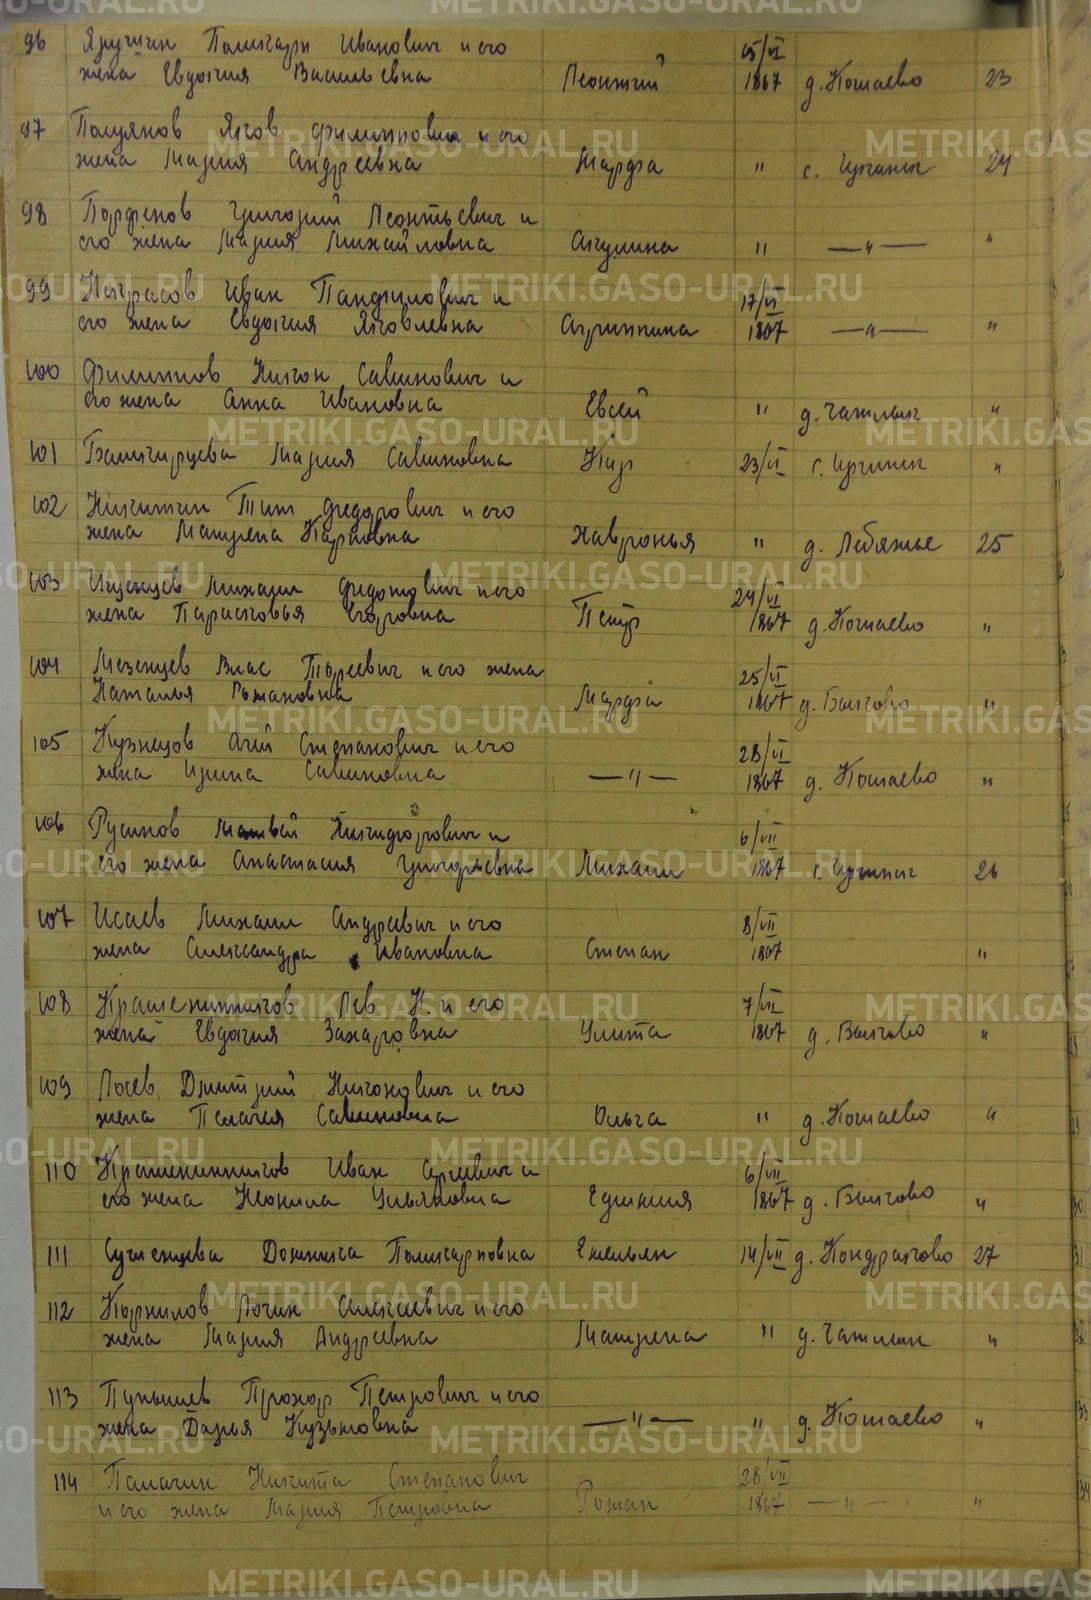 96 Яружин Поликарп Иванович и его 15/VI
жена Евдокия Васильевна Леонтий 1867 д. Кошаево 23
97 Полуянов Яков Филиппович и его
жена Мария Андреевна Марфа " с. Иргинск 24
98 Парфенов Григорий Леонтьевич и
его жена Мария Михайловна Акулина " —"— "
99 Некрасов Иван Панфилович и 17/VI
его жена Евдокия Яковлевна Агриппина 1867 —"— "
100 Филиппов Никон Савинович и
его жена Анна Ивановна Евсей " д. Чатлык "
101 Башкирцева Мария Савиновна Кир 23/VI с. Иргинск "
102 Никитин Тит Федорович и его
жена Матрена Карповна Хавронья " д. Лебяжье 25
103 Михаил Федотович и его 24/VI
жена Парасковья Егоровна Петр 1867 д. Кошаево "
104 Мезенцев Влас и его жена 25/VI
Наталья Романовна Марфа 1867 д. Быково "
105 Кузнецов Агей Степанович и его 28/VI
жена Ирина Савиновна —"— 1867 д. Кошаево "
106 Русинов Матвей Никифорович и 6/VII
его жена Анастасия Григорьевна Михаил 1867 с. Иргинск 26
107 Исаев Михаил Андреевич и его 8/VII
жена Александра Ивановна Степан 1867 "
108 Крашенинников Лев Н. и его 7/VII
жена Евдокия Захаровна Улита 1867 д. Быково "
109 Лосев Дмитрий Никонович и его
жена Пелагея Савиновна Ольга " д. Кошаево "
110 Крашенинников Иван и 6/VII
его жена Неонила Ульяновна 1867 д. Быково "
111 Домника Поликарповна Емельян 14/VII д. Кондраково 27
112 Корнилов Логин Алексеевич и его
жена Мария Андреевна Матрена " д. Чатлык "
113 Прохор Петрович и его
жена Дарья Кузьмовна —"— " д. Кошаево "
114 Палагин Никита Степанович 28/VII
и его жена Мария Петровна Роман 1867 —"— "
METRIKI.GASO-URAL.RU